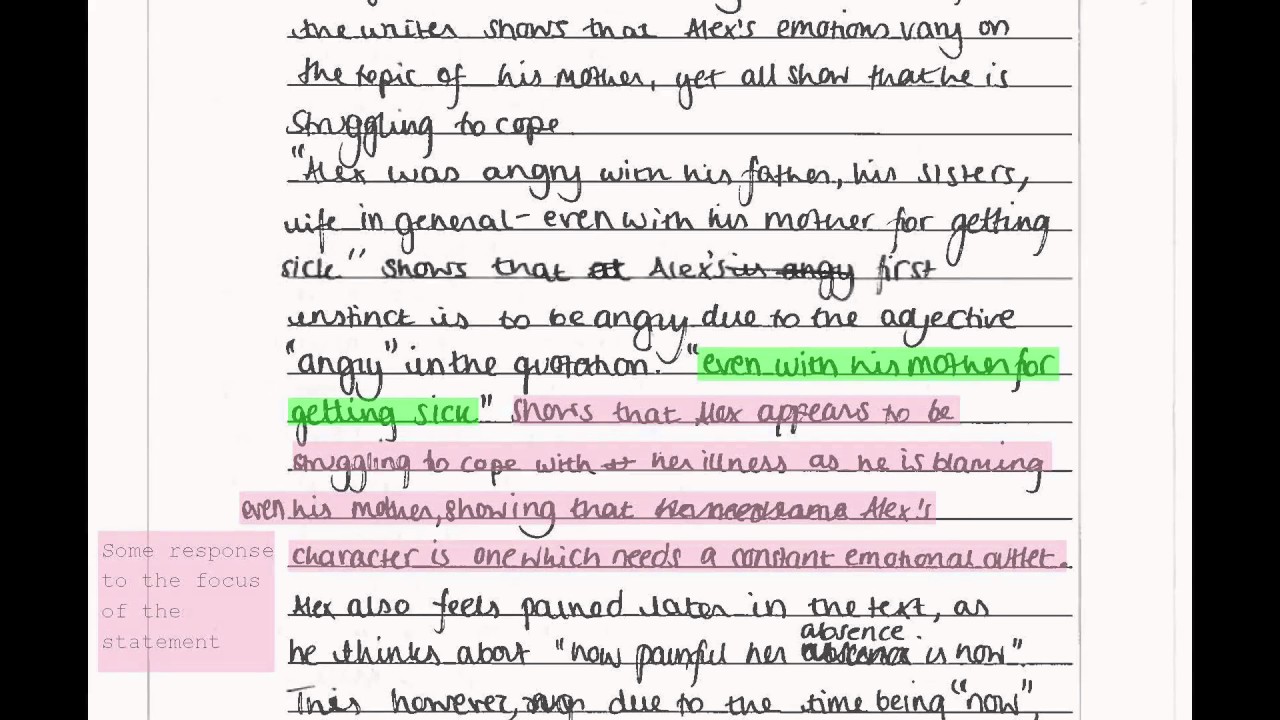 the writer shows that Alex's emotions vary on
the topic of his mother, yet all show that he is
struggling to cope
"Alex was angry with his father, his sisters,
life in general - even with his mother for getting
sick" shows that at Alex's is angy first
instinct is to be angry due to the adjective
"angry" in the quotation. "even with his mother for
getting sick" shows that Alex appears to be
struggling to cope with her illness as he is blaming
even his mother, showing that Alex's
character is one which needs a constant emotional outlet.
Some response
to the focus
of the
statement
Alex also feels pained later in the text, as
absence.
he thinks about "how painful her is now"
This however, due to the time being "now",